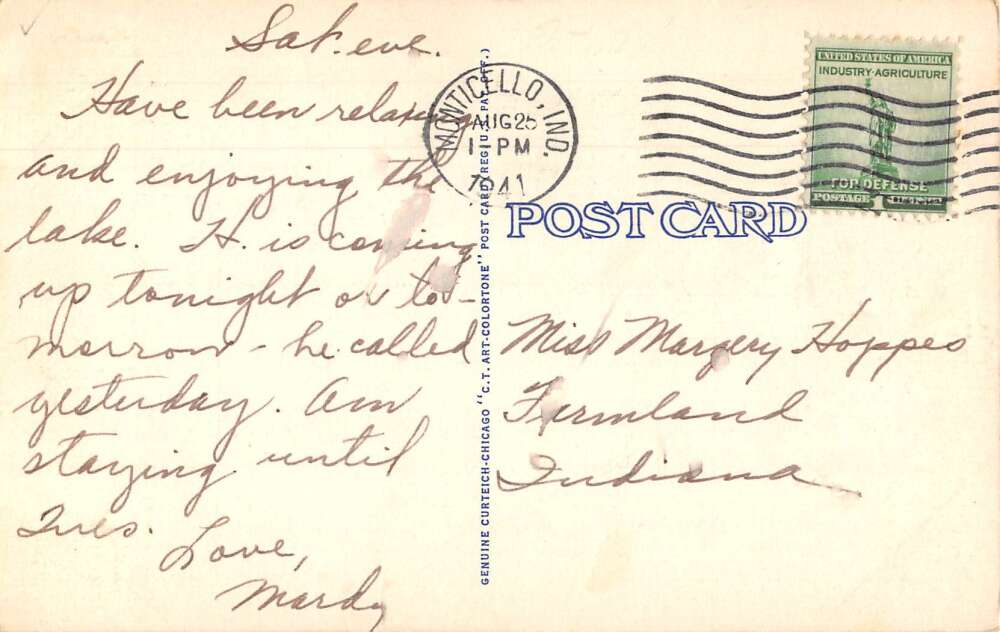 Sat. eve.
Have been relaxing
and enjoying the
lake. H. is coming
up tonight or to-
morrow - he called
yesterday. Am
staying until
Tues.
Love,
Mardy
GENUINE CURTEICH-CHICAGO "C.T. ART-COLORTONE" POST CARD (REG. U.S. PAT. OFF.)
MONTICELLO, IND.
AUG 25
11 PM
1941
UNITED STATES OF AMERICA
INDUSTRY · AGRICULTURE
FOR DEFENSE
POSTAGE 1¢
POST CARD
Miss Margery Hoppes
Farmland
Indiana